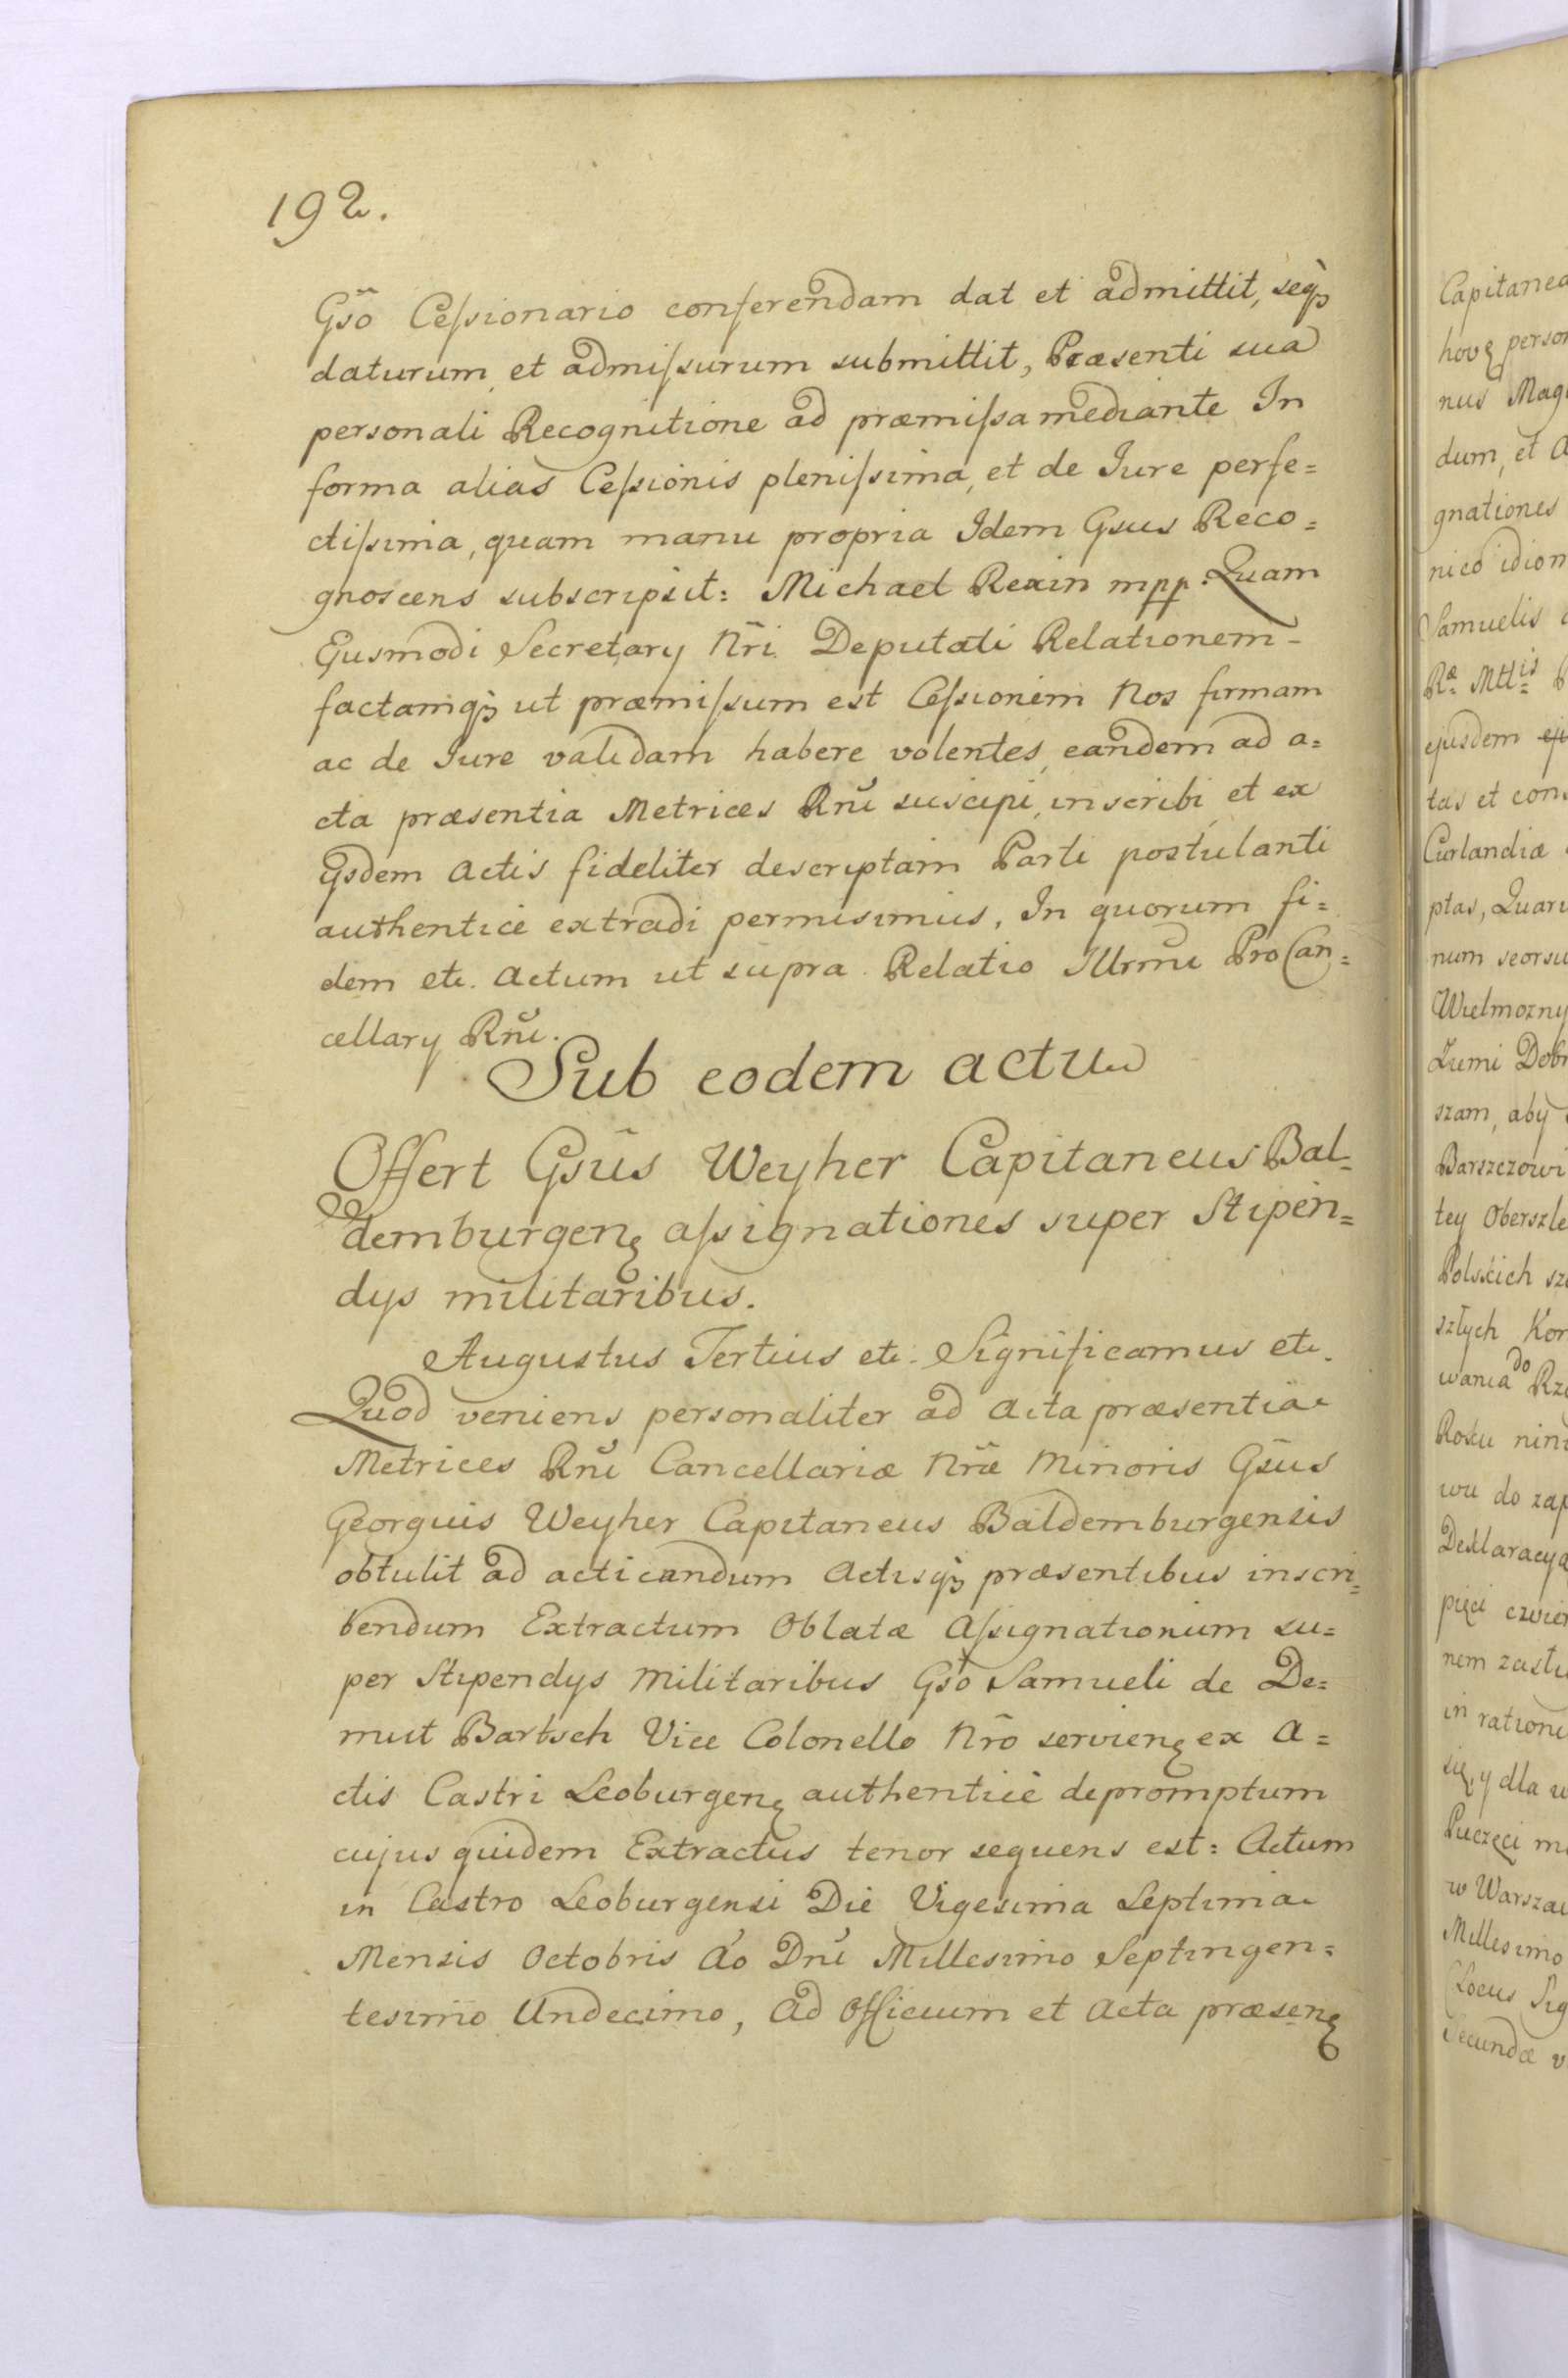 192.
Gs̃o Ceſsionario conferendam dat et admittit, seqꝫ
daturum, et admiſsurum submittit, Præsenti sua
personali Recognitione ad præmiſsa mediante In
forma alias Ceſsionis pleniſsima, et de Iure perfe=
ctiſsima, quam manu propria Idem Gsus Reco=
gnoscens subscripsit: Michael Rexin mpp. Quam
Ejusmodi Secretary Nr̃i Deputati Relationem
factamqꝫ ut præmiſsum est Ceſsionem Nos firmam
ac de Iure validam habere volentes, eandem ad a=
cta præsentia Metrices Rñi suscipi, inscribi, et ex
ijsdem Actis fideliter descriptam Parti postulanti
authentice extradi permisimus. In quorum fi=
dem etc. Actum ut supra. Relatio Illrmi ProCan=
cellary Rñi.
Sub eodem actu
Offert Gsũs Weyher Capitaneus Bal=
demburgenꝫ aſsignationes super Stipen=
dys militaribus.
Augustus Tertius etc. Significamus etc.
Quod veniens personaliter ad Acta præsentia
Metrices Rñi Cancellariæ Nr̃æ Minoris Gsũs
Georgius Weyher Capitaneus Baldemburgensis
obtulit ad acticandum Actisqꝫ præsentibus inscri=
bendum Extractum Oblatæ Aſsignationum su=
per Stipendys Militaribus Gs̃o Samueli de De=
mut Bartsch Vice Colonello Nr̃o servienꝫ ex A=
ctis Castri Leoburgenꝫ authentice depromptum
cujus quidem Extractus tenor sequens est: Actum
in Castro Leoburgensi Die Vigesima Septima
Mensis Octobris Ao Dñi Millesimo Septingen=
tesimo Undecimo, Ad Officium et Acta præsenꝫ
Capitanea
hovꝫ person
nus Mag
dum, et A
gnationes
nico idiom
Samuelis
Ræ Mttis
ejusdem
tas et con
Curlandiæ
ptas, Quar
num seorsu
Wielmozny
Zumi Dob
szam, aby
Barszczowi
tey Oberszle
Polskich sz
szłych Kor
wania do Rz
Roku nin
wu do zap
Deklaracya
pięci czwier
nem zastu
in ratione
się, y dla w
Pieczęci m
w Warszaw
Millesimo
(Locus Sig
Secundæ v